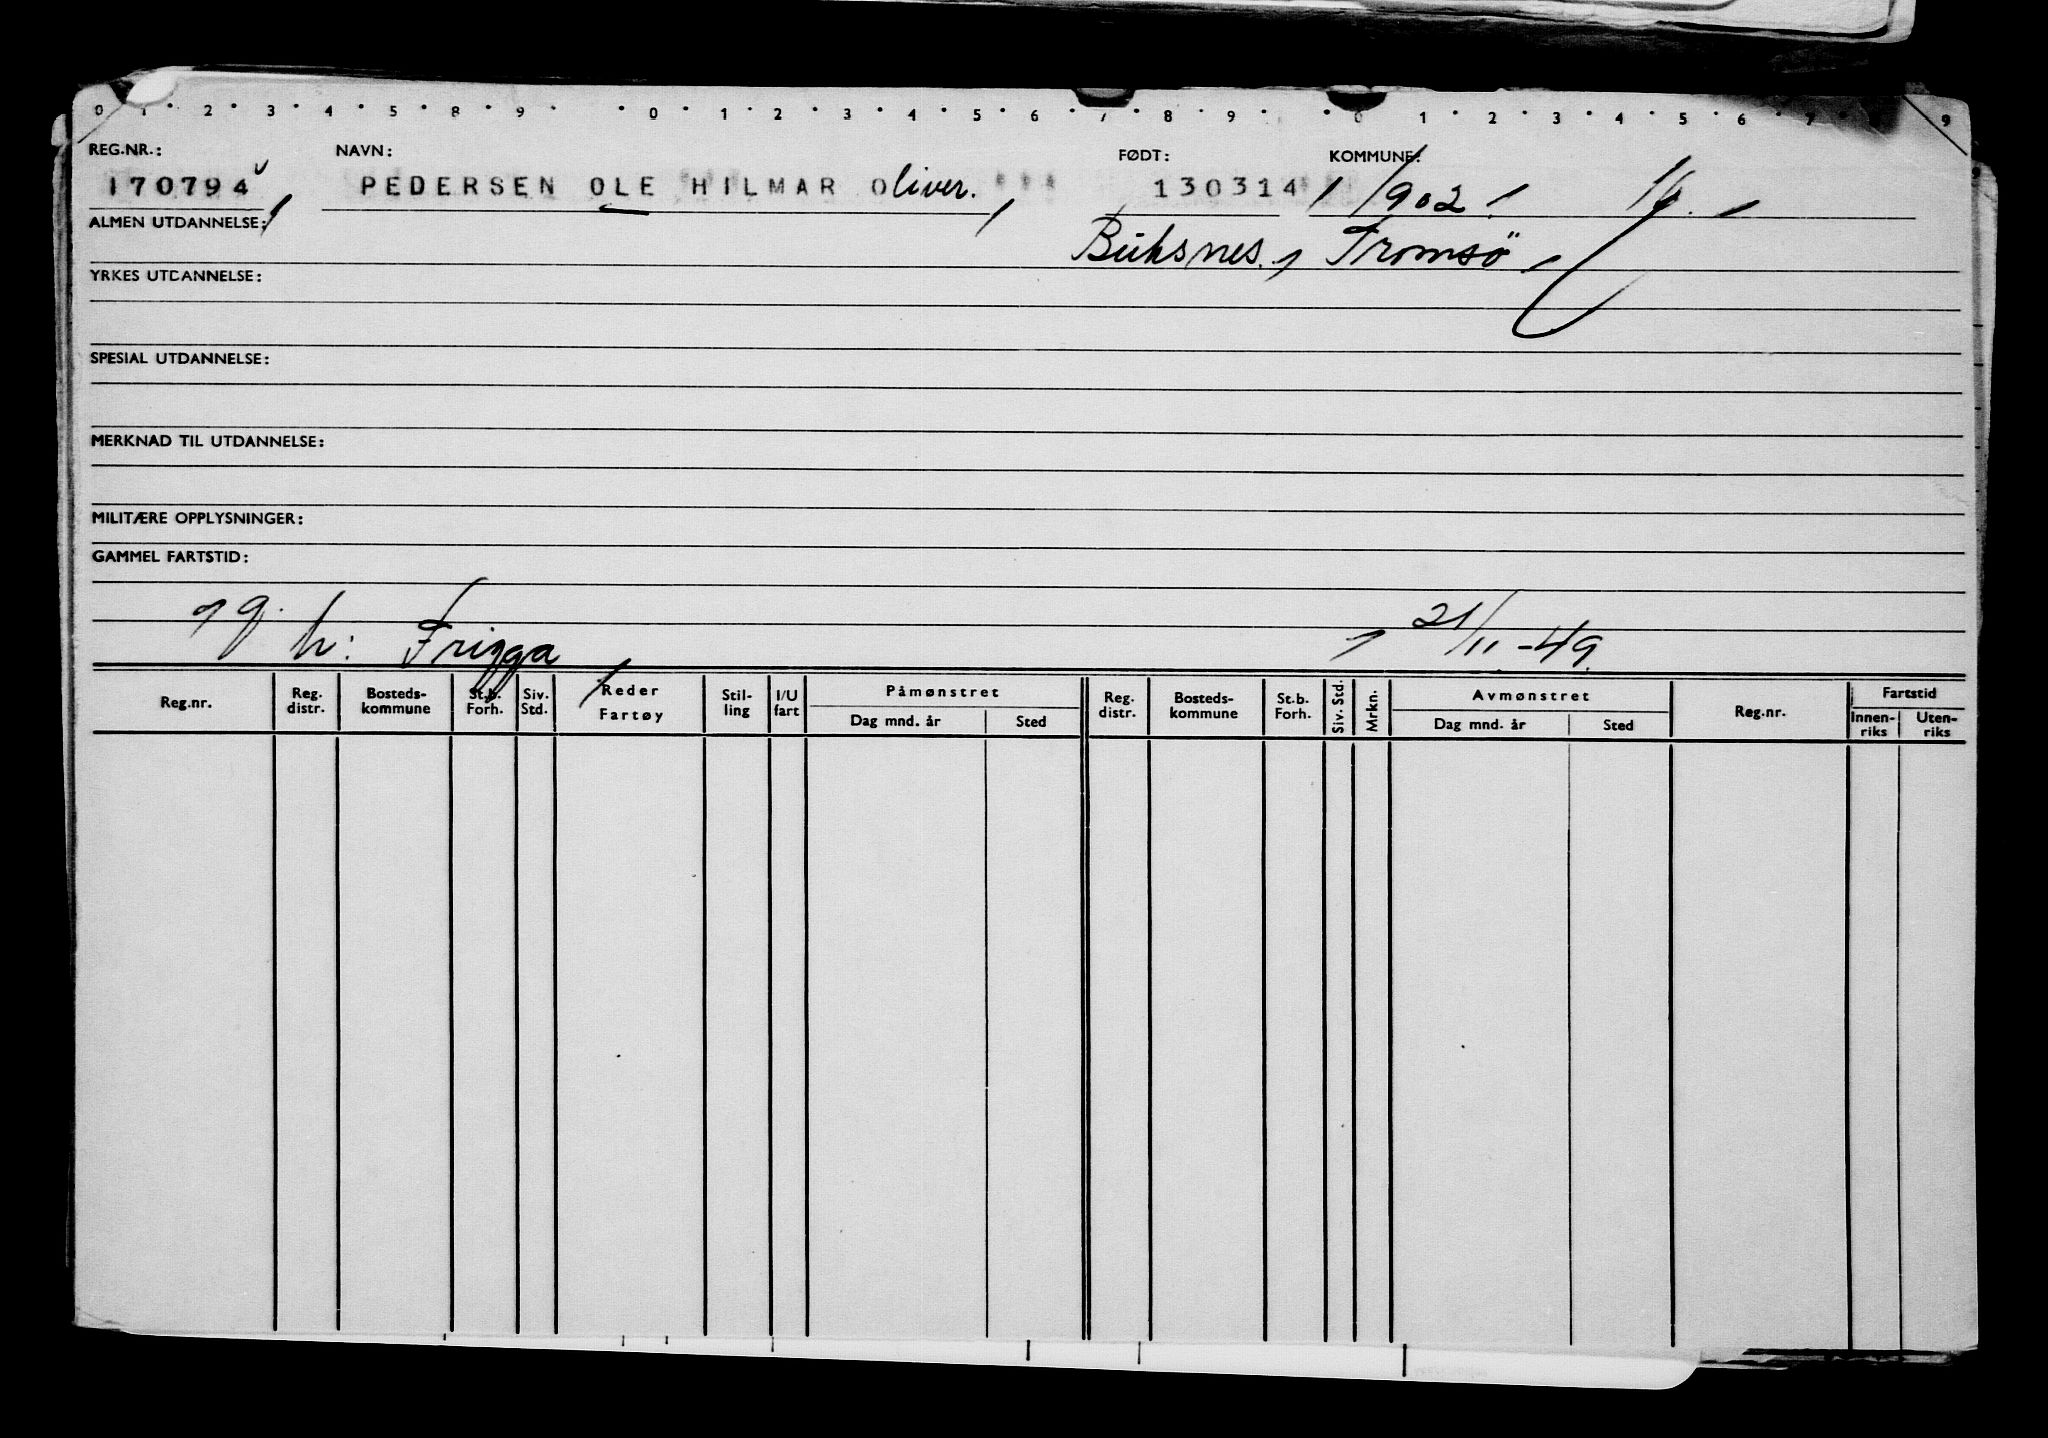 0 1 2 3 4 5 8 9 0 1 2 3 4 5 6 7 8 9 0 1 2 3 4 5 6 7 9
REG.NR.: NAVN: FØDT: KOMMUNE:
170794 PEDERSEN OLE HILMAR Oliver. 130314 1902
ALMEN UTDANNELSE: Buksnes. Tromsö
YRKES UTDANNELSE:
SPESIAL UTDANNELSE:
MERKNAD TIL UTDANNELSE:
MILITÆRE OPPLYSNINGER:
GAMMEL FARTSTID:
h: Frigga 21/11-49.
Reg.nr. Reg. distr. Bosteds-kommune St.b. Forh. Siv. Std. Reder Fartøy Stil-ling I/U fart Påmønstret Dag mnd. år Sted Reg. distr. Bosteds-kommune St.b. Forh. Siv. Std. Mrkn. Avmønstret Dag mnd. år Sted Reg.nr. Fartstid Innen-riks Uten-riks